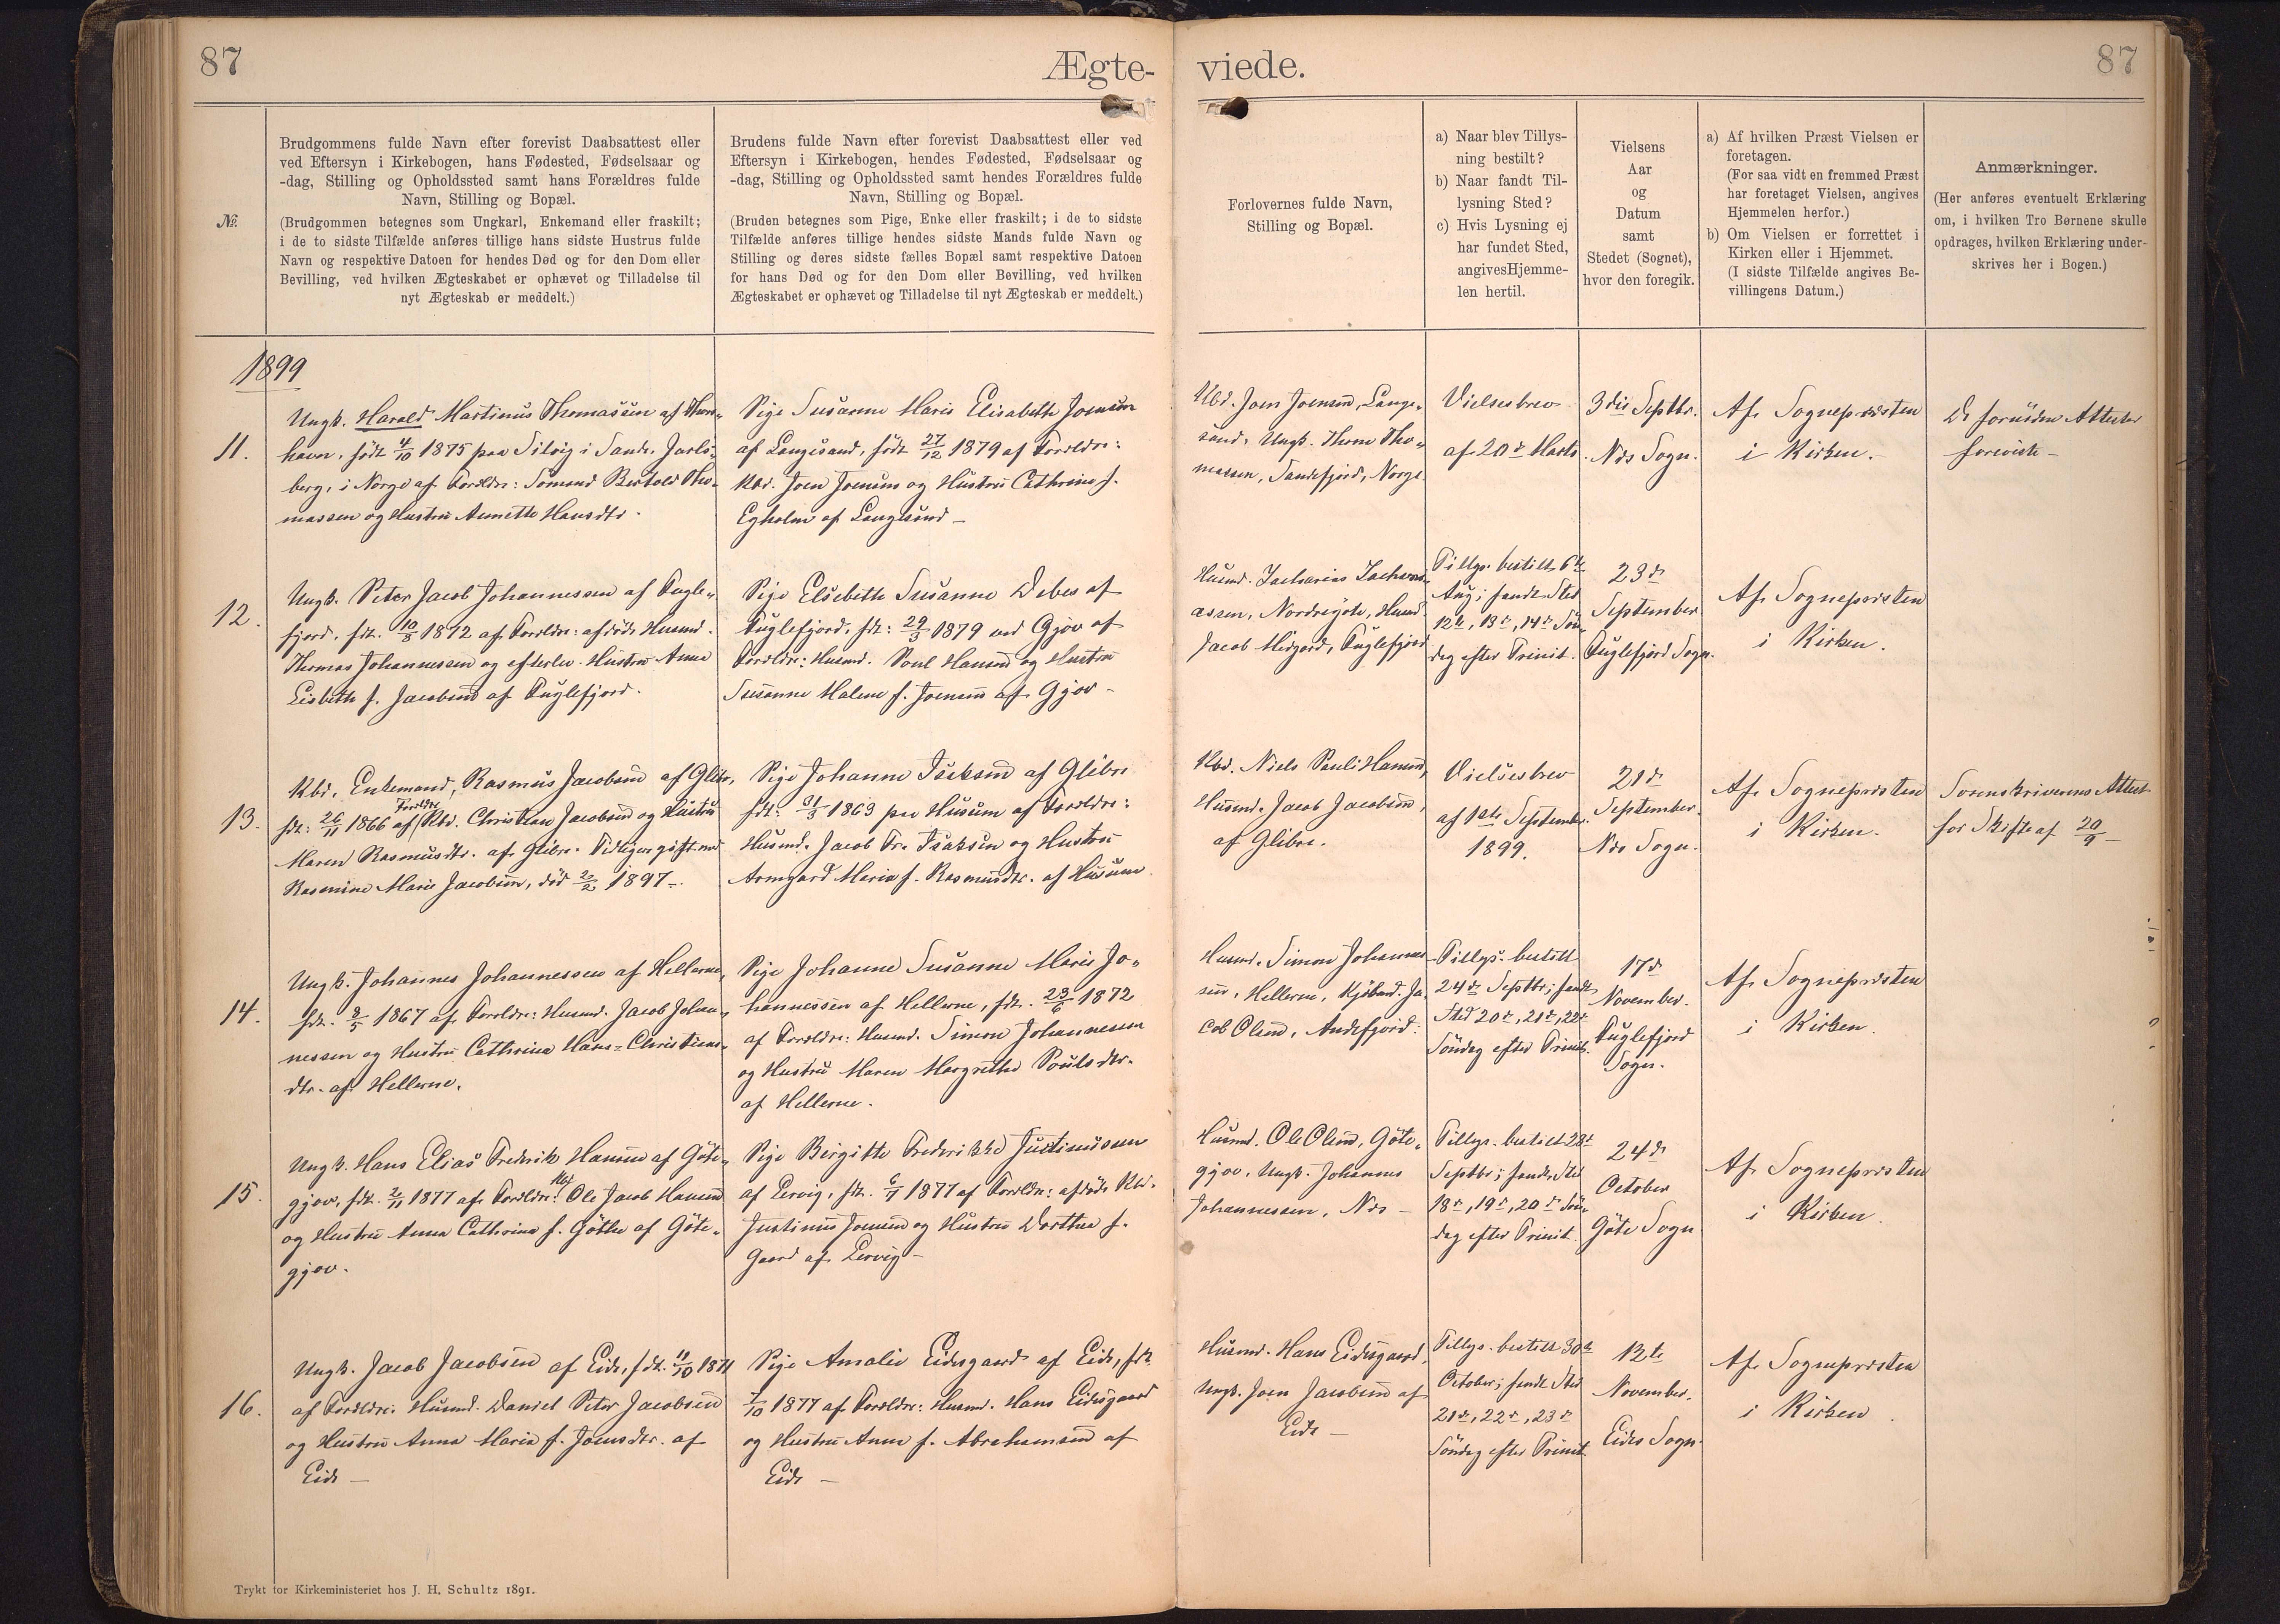 87
Ægte-
viede.
87
№.
Brudgommens fulde Navn efter forevist Daabsattest eller
ved Eftersyn i Kirkebogen, hans Fødested, Fødselsaar og
-dag, Stilling og Opholdssted samt hans Forældres fulde
Navn, Stilling og Bopæl.
(Brudgommen betegnes som Ungkarl, Enkemand eller fraskilt;
i de to sidste Tilfælde anføres tillige hans sidste Hustrus fulde
Navn og respektive Datoen for hendes Død og for den Dom eller
Bevilling, ved hvilken Ægteskabet er ophævet og Tilladelse til
nyt Ægteskab er meddelt.)
Brudens fulde Navn efter forevist Daabsattest eller ved
Eftersyn i Kirkebogen, hendes Fødested, Fødselsaar og
-dag, Stilling og Opholdssted samt hendes Forældres fulde
Navn, Stilling og Bopæl.
(Bruden betegnes som Pige, Enke eller fraskilt; i de to sidste
Tilfælde anføres tillige hendes sidste Mands fulde Navn og
Stilling og deres sidste fælles Bopæl samt respektive Datoen
for hans Død og for den Dom eller Bevilling, ved hvilken
Ægteskabet er ophævet og Tilladelse til nyt Ægteskab er meddelt.)
Forlovernes fulde Navn,
Stilling og Bopæl.
a) Naar blev Tillys-
ning bestilt?
b) Naar fandt Til-
lysning Sted?
c) Hvis Lysning ej
har fundet Sted,
angives Hjemme-
len hertil.
Vielsens
Aar
og
Datum
samt
Stedet (Sognet),
hvor den foregik.
a) Af hvilken Præst Vielsen er
foretagen.
(For saa vidt en fremmed Præst
har foretaget Vielsen, angives
Hjemmelen herfor.)
b) Om Vielsen er forrettet i
Kirken eller i Hjemmet.
(I sidste Tilfælde angives Be-
villingens Datum.)
Anmærkninger.
(Her anføres eventuelt Erklæring
om, i hvilken Tro Børnene skulle
opdrages, hvilken Erklæring under-
skrives her i Bogen.)
1899
11.
Ungk. Harald Martinus Thomassen af Thors-
havn, født 4/10 1875 paa i Sande, Jarls-
berg, i Norge af Forældre: Bertold Tho-
massen og Hustru Annette Hansdtr.
Pige Susanne Marie Elisabeth Joensen
af Langesand, født 27/12 1879 af Forældre:
Kbd. Joen Joensen og Hustru Cathrine f.
Egholm af Langesand -
Kbd. Joen Joensen, Lange-
sand, Ungk. Thom Tho-
massen, Sandefjord, Norge
Vielsesbrev
af 20de Marts
3die Septbr.
Næs Sogn.
Af Sognepræsten
i Kirken.
De fornødne Attester
foreviste -
12.
Ungk. Peter Jacob Johannessen af Fugle-
fjord, fdt. 10/5 1872 af Forældre: afdøde Husmd.
Thomas Johannessen og efterlev. Hustru Anna
Lisbeth f. Jacobsen af Fuglefjord.
Pige Elsebeth Susanne Debes af
Fuglefjord, fdt: 29/3 1879 ved Gjov af
Forældre: Husmd. Poul Hansen og Hustru
Susanne Malene f. Joensen af Gjov -
Husmd. Zacharias Zachari-
assen, Nordregöte, Husmd.
Jacob Midjord, Fuglefjord
Tillys. bestilt 6te
Aug; fandt Sted
12te, 13de, 14de Søn-
dag efter Trinit.
23de
September
Fuglefjord Sogn.
Af Sognepræsten
i Kirken.
13.
Kbd. Enkemand, Rasmus Jacobsen af Glibre,
fdt: 26/11 1866 af Forældre Kbd. Christian Jacobsen og Hustru
Maren Rasmusdtr. af Glibre. Tidligere gift med
Rasmine Marie Jacobsen, død 2/2 1897 -
Pige Johanne Isaksen af Glibre
fdt: 31/3 1863 paa Husum af Forældre:
Husmd. Jacob Fr. Isaksen og Hustru
Armgard Maria f. Rasmusdtr. af Husum
Kbd. Niels Pauli Hansen,
Husmd. Jacob Jacobsen,
af Glibre.
Vielsesbrev
af 1ste September
1899.
21de
September.
Næs Sogn.
Af Sognepræsten
i Kirken.
Sorenskriverens Attest
for Skifte af 20/9 -
14.
Ungk. Johannes Johannessen af Hellerne,
fdt. 8/5 1867 af Forældre: Husmd. Jacob Johan-
nessen og Hustru Cathrina Hans=Christians-
dtr. af Hellerne.
Pige Johanne Susanne Marie Jo-
hannessen af Hellerne, fdt. 23/6 1872
af Forældre: Husmd. Simon Johannessen
og Hustru Maren Margrethe Poulsdtr.
af Hellerne.
Husmd. Simon Johannes-
sen, Hellerne, Kjøbmd. Ja-
cob Olsen, Andefjord.
Tillys. bestilt
24de Septbr; fandt
Sted 20de, 21de, 22de
Søndag efter Trinit.
17de
November.
Fuglefjord
Sogn.
Af Sognepræsten
i Kirken.
15.
Ungk. Hans Elias Frederik Hansen af Göte-
gjov, fdt. 2/11 1877 af Forældre: Kbd. Ole Jacob Hansen
og Hustru Anna Cathrina f. Göthe af Göte-
gjov.
Pige Birgitte Frederikke Justinussen
af Lervig, fdt. 6/7 1877 af Forældre: afdøde Kbd.
Justinus Joensen og Hustru Dorthea f.
Gaard af Lervig -
Husmd. Ole Olsen, Göte-
gjov, Ungk. Johannes
Johannessen, Næs -
Tillys. bestilt 28de
Septbr; fandt Sted
18de, 19de, 20de Søn-
dag efter Trinit.
24de
October
Göte Sogn
Af Sognepræsten
i Kirken.
16.
Ungk. Jacob Jacobsen af Eide, fdt. 11/10 1871
af Forældre: Husmd. Daniel Peter Jacobsen
og Hustru Anna Maria f. Joensdtr. af
Eide -
Pige Amalie Eidesgaard af Eide, fdt.
7/10 1877 af Forældre: Husmd. Hans Eidesgaard
og Hustru Anne f. Abrahamsen af
Eide -
Husmd. Hans Eidesgaard,
Ungk. Joen Jacobsen af
Eide -
Tillys. bestilt 30te
October; fandt Sted
21de, 22de, 23de
Søndag efter Trinit.
12te
November.
Eides Sogn.
Af Sognepræsten
i Kirken.
Trykt for Kirkeministeriet hos J. H. Schultz 1891.